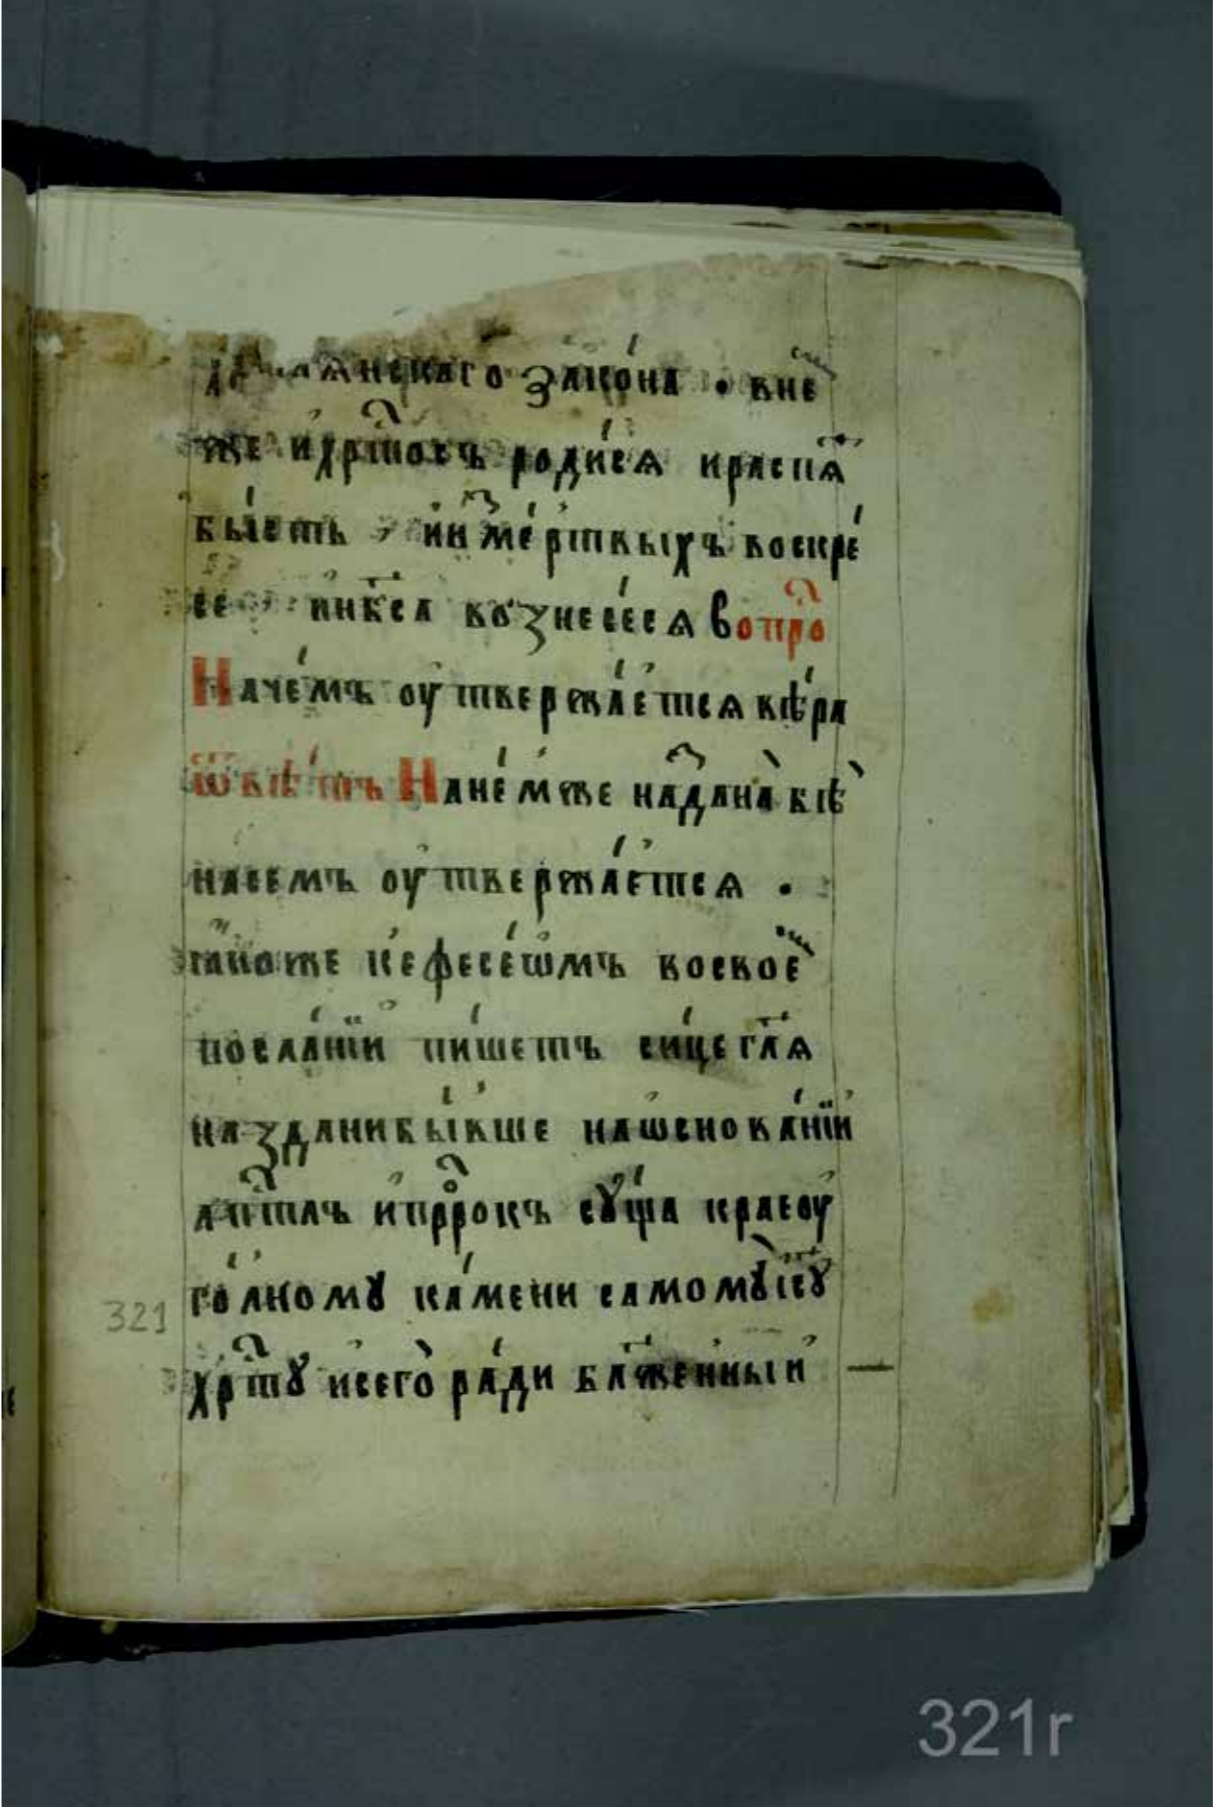 закона . вне
же и хрⷭ҇тосъ родисѧ и распѧ
бысть и из мертвыхъ воскре
се и на нб҃са вознесесѧ вопроⷭ҇
На чемъ оутвержаетсѧ вѣра
ѿвѣтъ На немже наздана бѣ
на семъ оутвержаетсѧ .
ꙗкоже к ефесеѡмъ во своеⷨ
посланїи пишетъ сице гл҃ѧ
наздани бывше на ѡсновании
апⷭ҇тлъ и пррⷪ҇къ сꙋща краеоу
голномꙋ камени самомꙋ іс҃ꙋ
хрⷭ҇тꙋ и сего ради бл҃женныи
321
321r